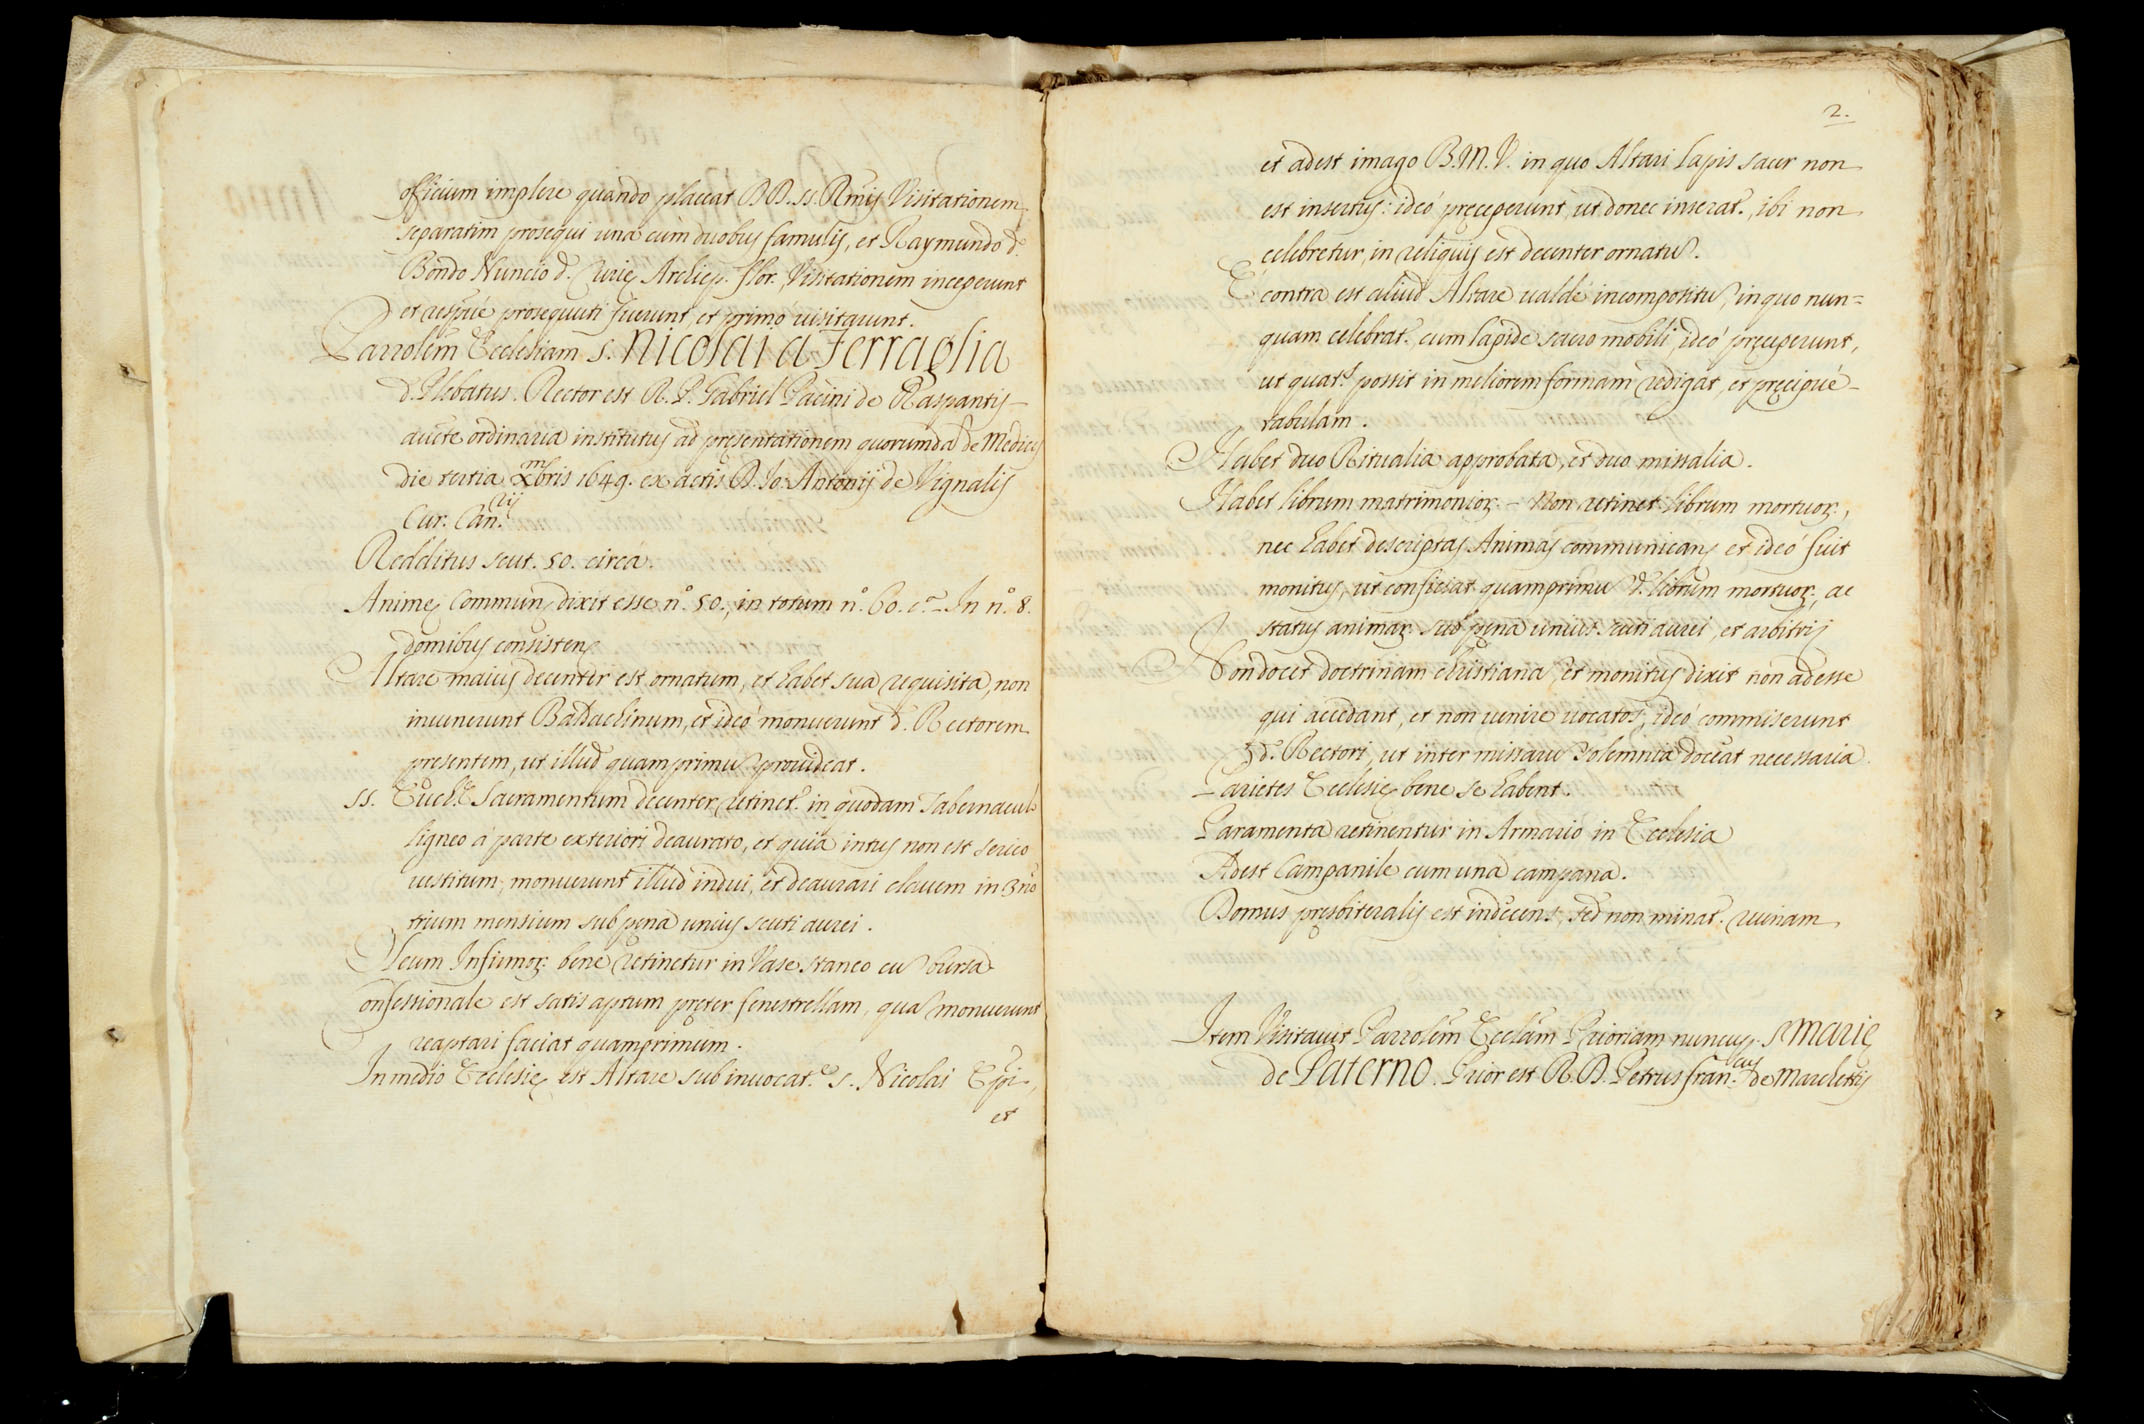 officium implere quando placeat DD. ss. Rmis Visitationem
separatim prosequi una cum duobus famulis, et Raymundo d.
Bondo Nuncio d. Curie Archiep. flor. Visitationem inceperunt
et respue prosequuti fuerunt, et primo visitarunt.
Parrolem Ecclesiam S. Nicolai a Ferraglia
d. Plebatus. Rector est R. P. Gabriel Pacini de Raspantis
aucte ordinaria institutus ad presentationem quorumda de Medicis
die tertia xmbris 1649. ex actis D. Io: Antonij de Vignalis
Cur. Can.rij
Redditus scut. 50. circa.
Anime Commun. dixit esse n.o 50., in totum n.o 60. c.a In n.o 8.
domibus consisten.
Altare maius decenter est ornatum, et habet sua requisita, non
invenerunt Baldachinum, et ideo monuerunt d. Rectorem
presentem, ut illud quam primu provideat.
SS. Euch.e Sacramentum decenter retinet. in quodam Tabernaculo
ligneo a parte exteriori deaurato, et quia intus non est serico
vestitum, monuerunt illud indui, et deaurari clavem in 3no
trium mensium sub pena unius scuti aurei.
Oleum Infirmor. bene retinetur in Vase staneo cu bursa
Confessionale est satis aptum preter fenestrellam, qua monuerunt
reaptari faciat quamprimum.
In medio Ecclesie est Altare sub invocat.e S. Nicolai Epi,
et
2.
et adest imago B. M. V. in quo Altari lapis sacer non
est insertus: ideo preceperunt, ut donec inserat., ibi non
celebretur, in reliquis est decenter ornatu.
E contra est aliud Altare valde incompositu, in quo nun=
quam celebrat. cum lapide sacro mobili, ideo preceperunt,
ut quat.s possit in meliorem formam redigat, et precipue
tabulam.
Habet duo Ritualia approbata, et duo missalia.
Habet librum matrimonior. - Non retinet librum mortuor.,
nec habet descriptas Animas communicans et ideo fuit
monitus, ut conficiat quamprimu d. librum mortuor., ac
status animar. sub pena unius scuti aurei, et arbitrij
Non docet doctrinam christiana et monitus dixit non adesse
qui accedant, et non venire vocatos, ideo commiserunt
d. Rectori, ut inter missaru solemnia doceat necessaria.
Parietes Ecclesie bene se habent.
Paramenta retinentur in Armario in Ecclesia
Adest Campanile cum una campana.
Domus presbiteralis est indecens, sed non minat. ruinam
Item Visitavit Parrolem Ecclam Prioriam nuncup. S Marie
de Paterno. Prior est R. D. Petrus fran.cus de Marchettis